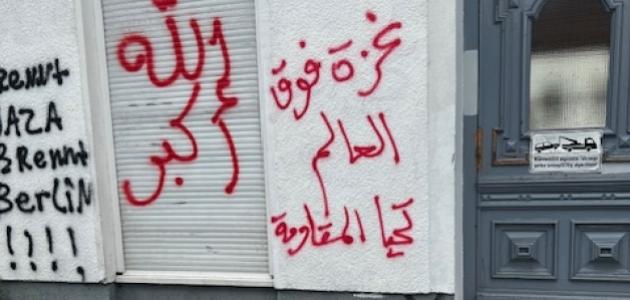 rennt
GAZA
BRennt
BerliN
!!!!
الله
أكبر
غزة فوق
العالم
تحيا المقاومة